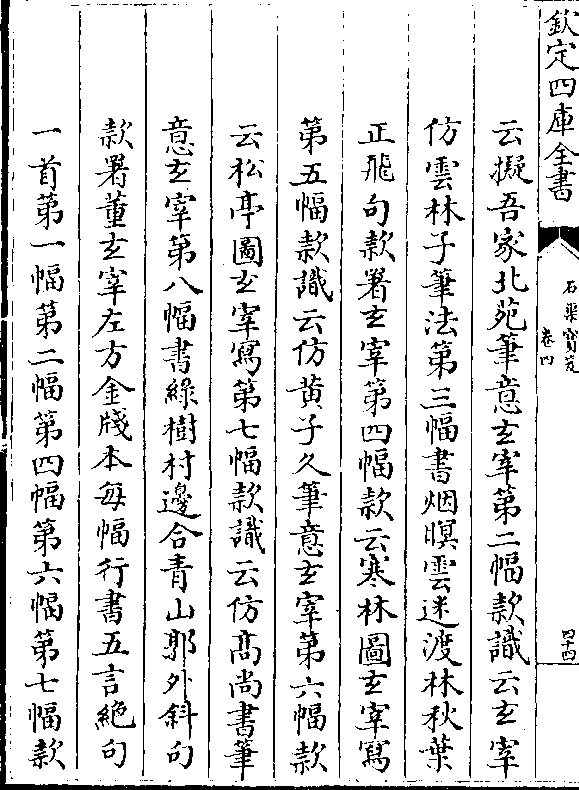 欽定四庫全書
石渠寳笈
卷四
四十四
云擬吾家北苑筆意玄宰第二幅款識云玄宰
仿雲林子筆法第三幅書烟暝雲迷渡林秋葉
正飛句款署玄宰第四幅款云寒林圖玄宰寫
第五幅款識云仿黄子久筆意玄宰第六幅款
云松亭圖玄宰寫第七幅款識云仿髙尚書筆
意玄宰第八幅書綠樹村邊合青山郭外斜句
款署董玄宰左方金牋本每幅行書五言絶句
一首第一幅第二幅第四幅第六幅第七幅款